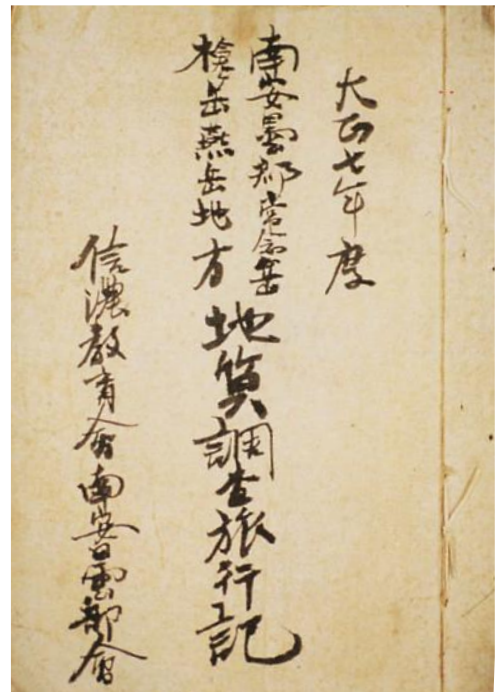 大正七年度
南安曇郡常念岳
槍岳燕岳地方
地質調査旅行記
信濃教育会南安曇部会